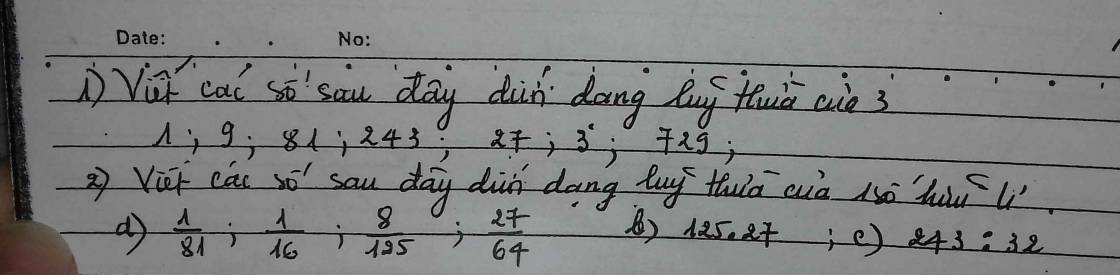 Date: . . No:
1) Viết các số sau đây dưới dạng luỹ thừa của 3
1 ; 9 ; 81 ; 243 ; 27 ; 3 ; 729 ;
2) Viết các số sau đây dưới dạng luỹ thừa của 1 số hữu tỉ .
a) 1/81 ; 1/16 ; 8/125 ; 27/64 b) 125.27 ; c) 243 : 32